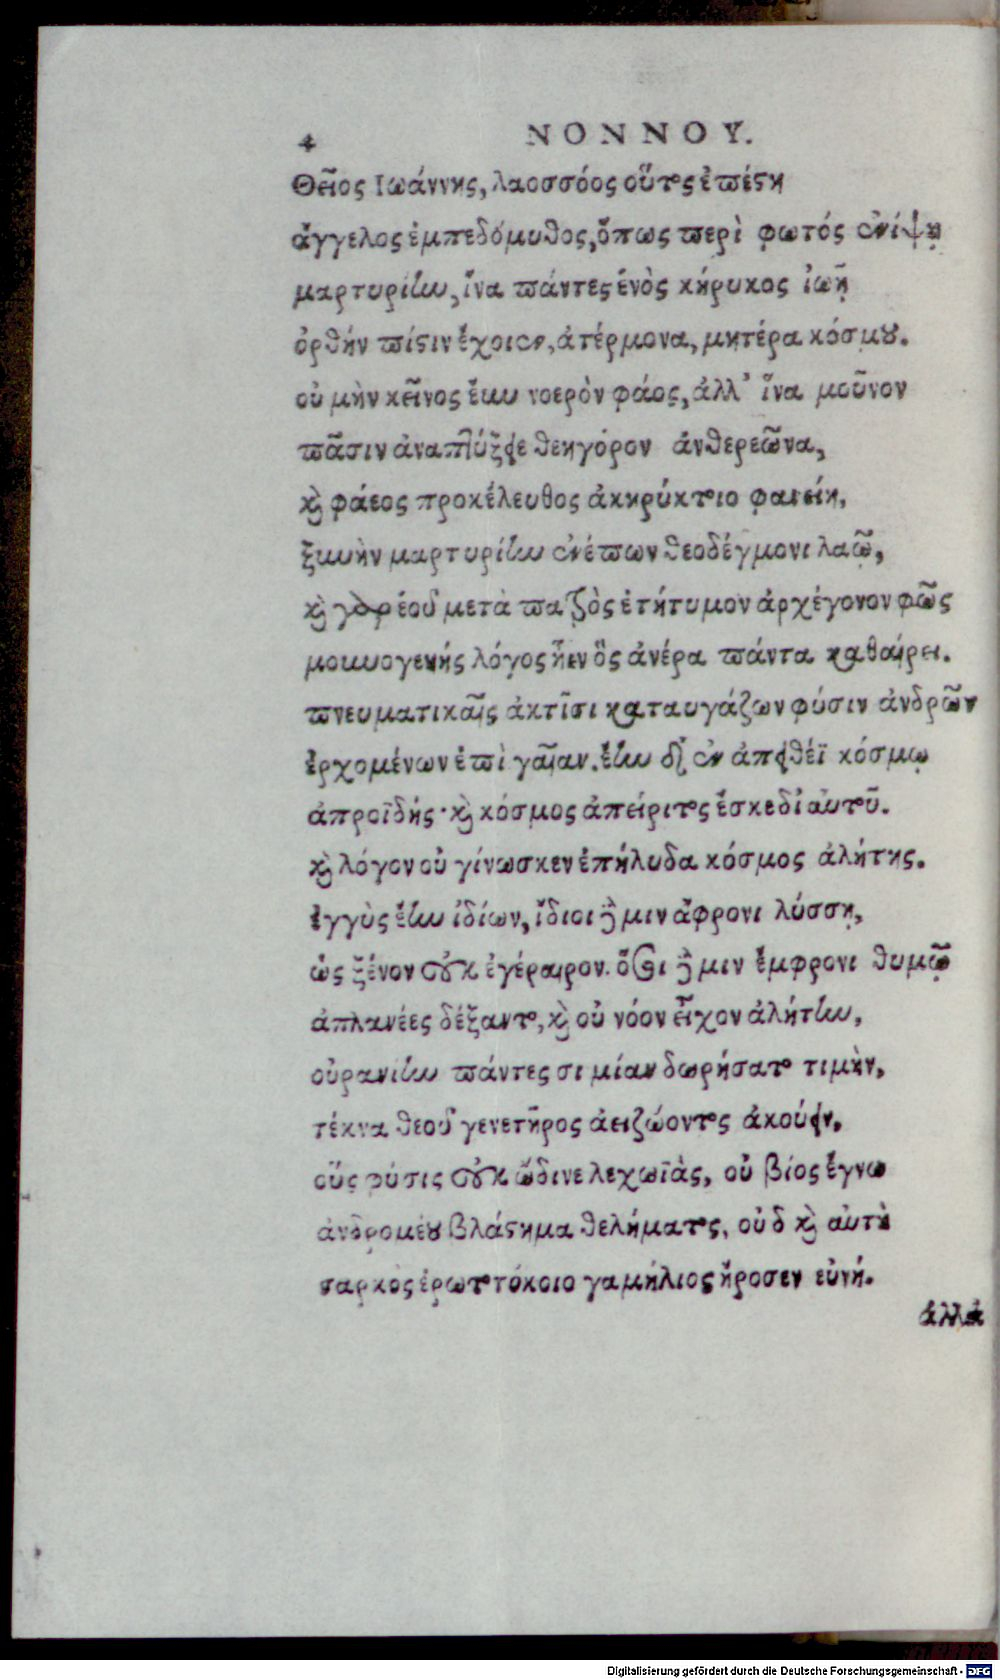 4 ΝΟΝΝΟΥ.
Θεῖος Ιωάννης, λαοσσόος οὗτος ἐπέστη
ἄγγελος ἐμπεδόμυθος, ὅπως περὶ φωτός ἐνίψῃ
μαρτυρίην, ἵνα πάντες ἑνὸς κήρυκος ἰωῇ
ὀρθήν πίστιν ἔχοιεν, ἀτέρμονα, μητέρα κόσμου.
οὐ μὴν κεῖνος ἔην νοερὸν φάος, ἀλλ' ἵνα μοῦνον
πᾶσιν ἀναπτύξειε θεηγόρον ἀνθερεῶνα,
καὶ φάεος προκέλευθος ἀκηρύκτοιο φανείη,
ξυνὴν μαρτυρίην ἐνέπων θεοδέγμονι λαῷ,
καὶ γὰρ ἑοῦ μετὰ πατρὸς ἐτήτυμον ἀρχέγονον φῶς
μουνογενής λόγος ἦεν ὃς ἀνέρα πάντα καθαίρει.
πνευματικαῖς ἀκτῖσι καταυγάζων φύσιν ἀνδρῶν
ἐρχομένων ἐπὶ γαῖαν. ἔην δ' ἐν ἀπειθέϊ κόσμῳ
ἀπροϊδής· καὶ κόσμος ἀπείριτος ἔσκε δι' αὐτοῦ.
καὶ λόγον οὐ γίνωσκεν ἐπήλυδα κόσμος ἀλήτης.
ἐγγὺς ἔην ἰδίων, ἴδιοι δέ μιν ἄφρονι λύσσῃ,
ὡς ξένον οὐκ ἐγέραιρον. ὅσσοι δέ μιν ἔμφρονι θυμῷ
ἀπλανέες δέξαντο, καὶ οὐ νόον εἶχον ἀλήτην,
οὐρανίην πάντεσσι μίαν δωρήσατο τιμὴν,
τέκνα θεοῦ γενετῆρος ἀειζώοντος ἀκούειν,
οὓς φύσις οὐκ ὤδινε λεχωϊὰς, οὐ βίος ἔγνω
ἀνδρομέου βλάστημα θελήματος, οὐδ καὶ αὐτὴ
σαρκὸς ἐρωτοτόκοιο γαμήλιος ἤροσεν εὐνή.
ἀλλὰ
Digitalisierung gefördert durch die Deutsche Forschungsgemeinschaft - DFG